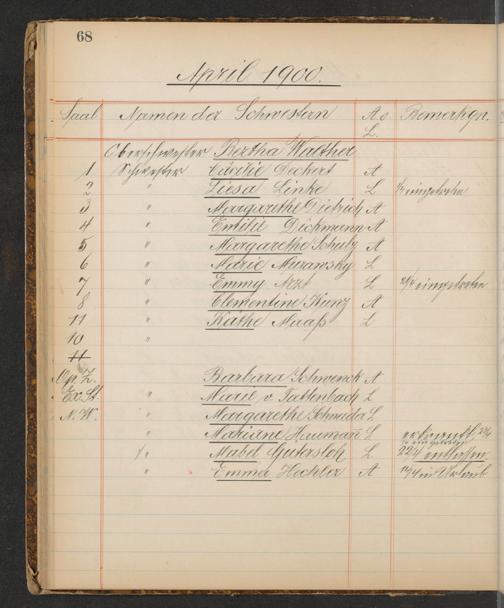 68
April 1900.
Saal Namen der Schwestern A o L. Bemerkgn.
Oberschwester Bertha Walther
1 Schwester Cäcilie Deckert A
2 " Luisa Linke L eingetreten
3 " Margarethe Dietrich A
4 " Emilie Dickmann A
5 " Margarethe Schulz A
6 " Marie Muransky L
7 " Emmy Arzt L eingetreten
8 " Clementine Kunz A
11 " Käthe Maaß L
10 "
11
Op. Z. Barbara Schwenck A
Ex. St. " Marie v. Tattenbach L
N. W. " Margarethe Schneider L
" Mariane Hauman L erkrankt
" Mabel Gutersloh L 22/4 entlassen
" Emma Hechler A in Urlaub